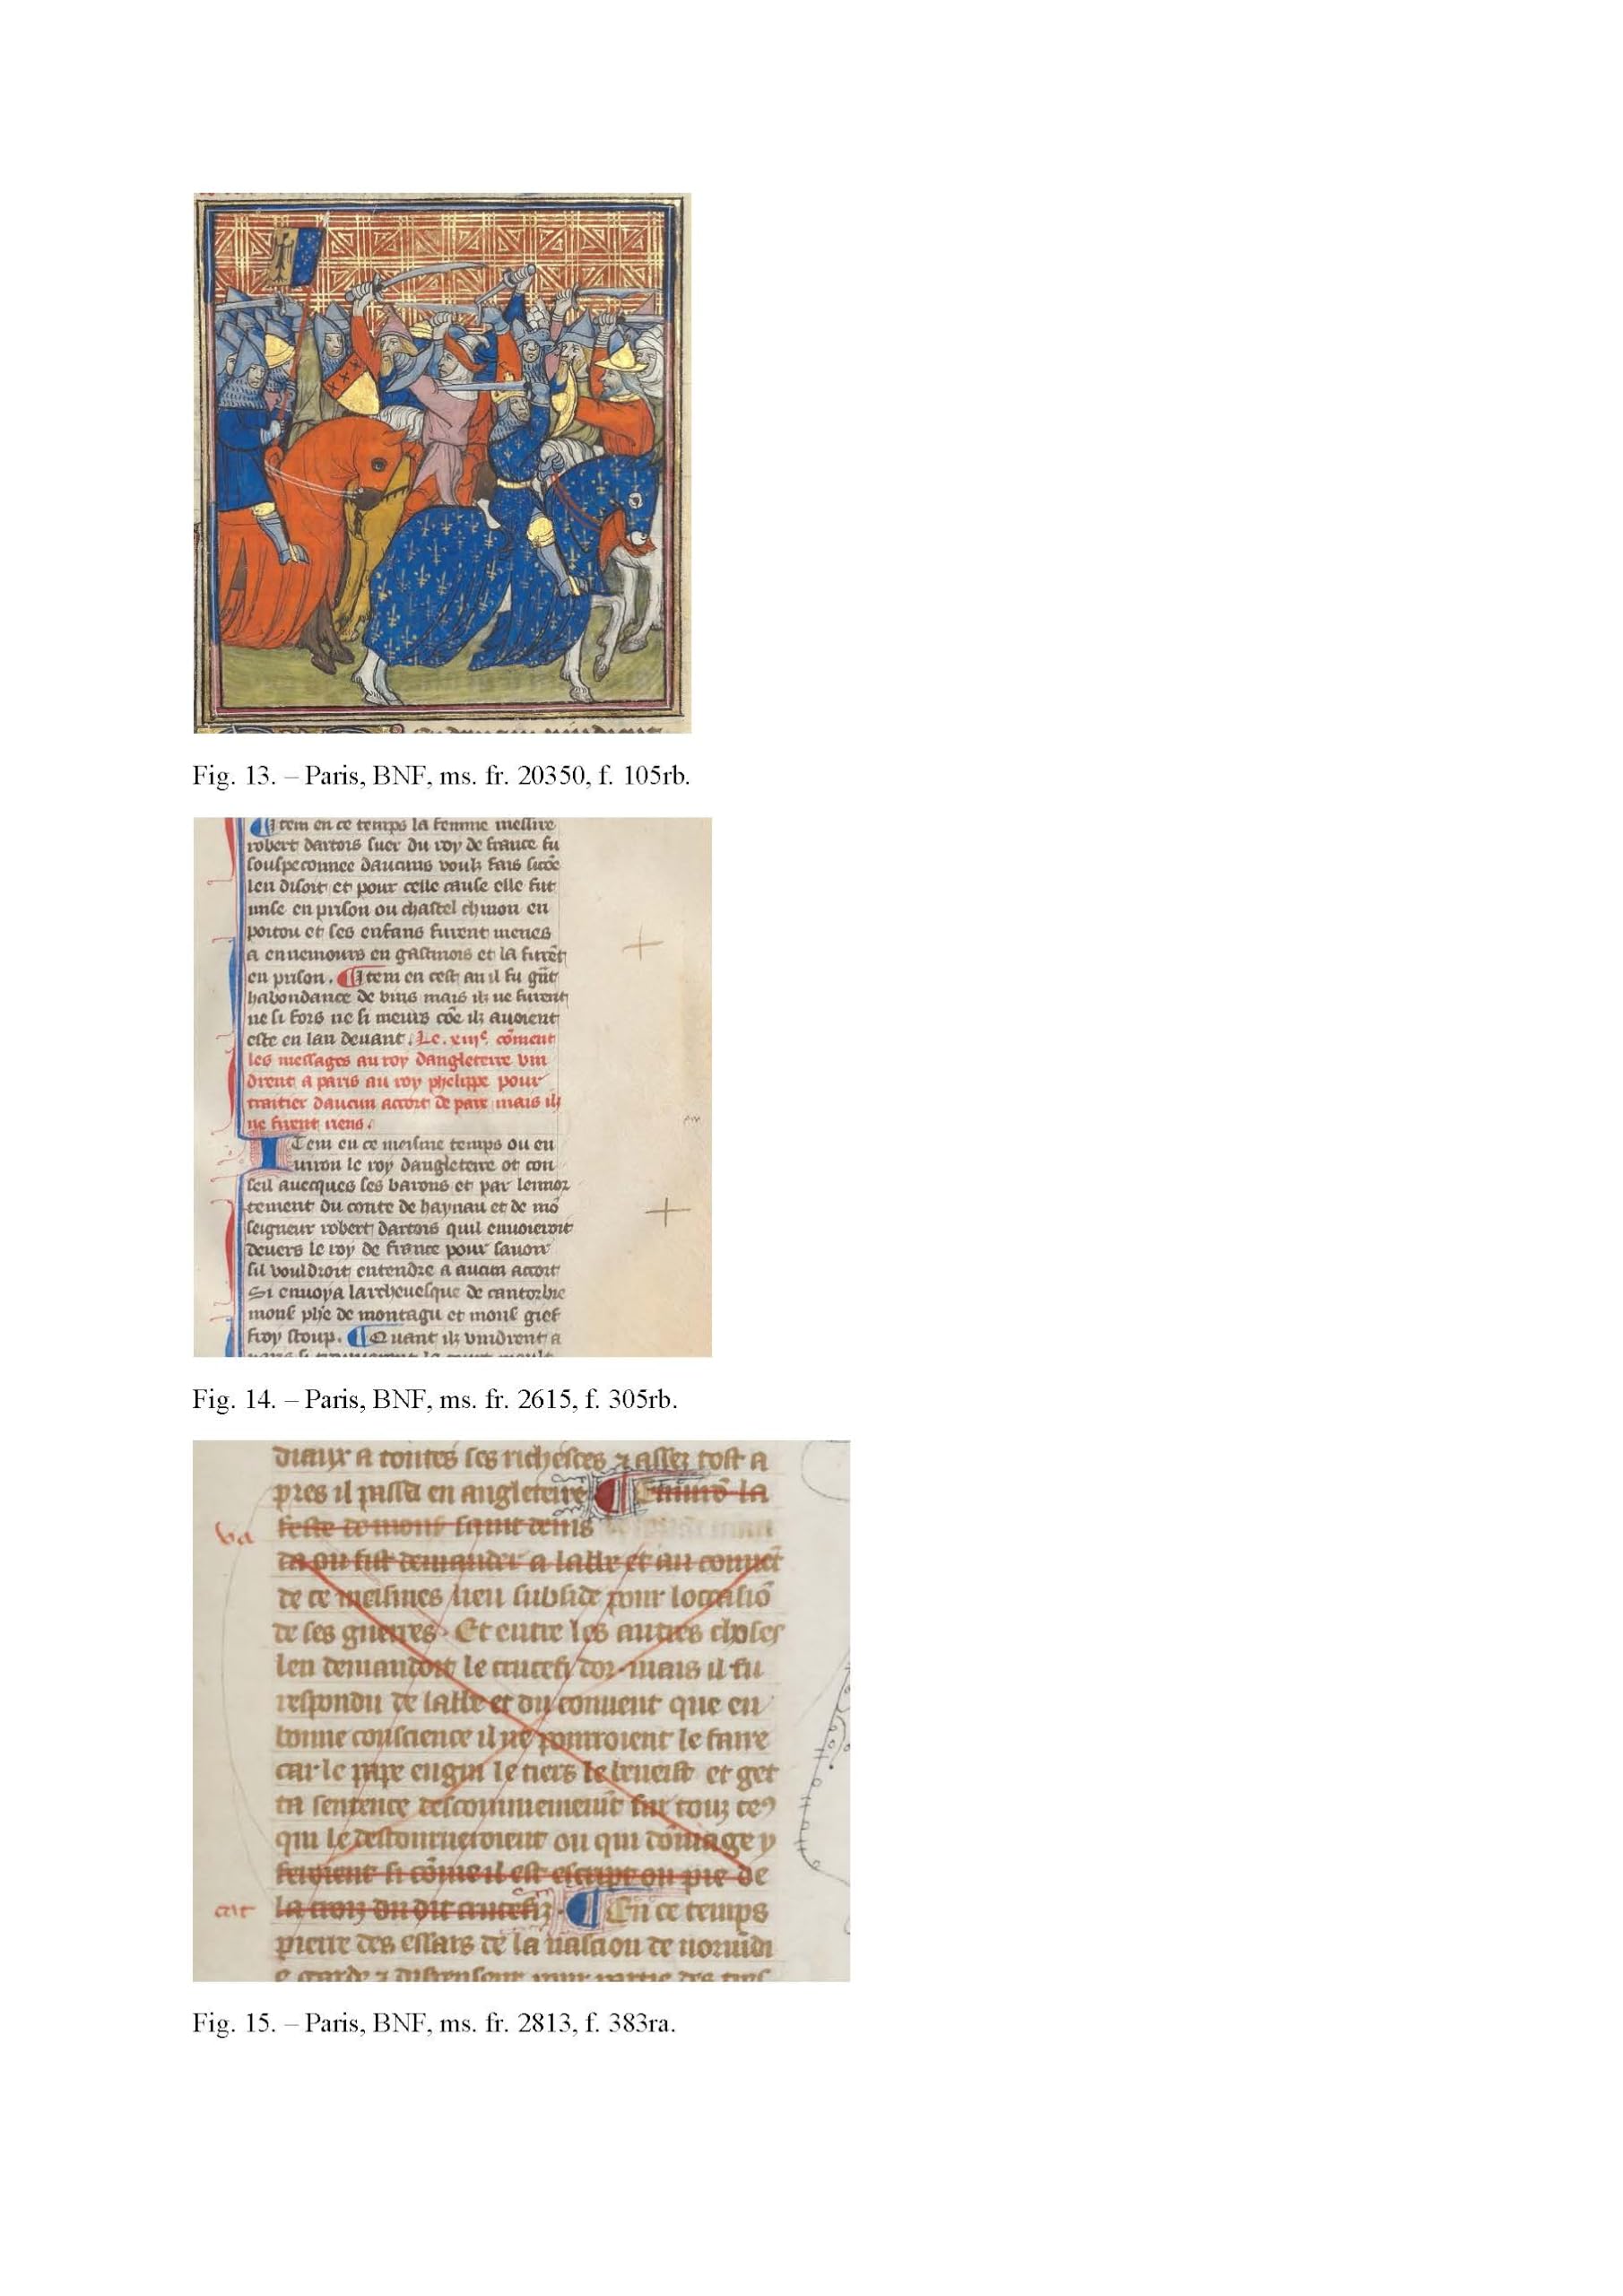 Fig. 13. – Paris, BNF, ms. fr. 20350, f. 105rb.
Item en ce temps la femme messire
robert dartois suer du roy de france fu
souspeconnee daucuns voulz fais sicōe
len disoit et pour celle cause elle fut
mise en prison ou chastel chinon en
poitou et ses enfans furent menes
a ennemours en gastinois et la furēt
en prison. ¶ Item en cest an il fu gñt
habondance de vins mais ilz ne furent
ne si fors ne si meurs cōe ilz auoient
este en lan deuant. Le .xiiiᵉ. cōment
les messages au roy dangleterre vin
drent a paris au roy phelippe pour
traitier daucun accort de paix mais ilz
ne firent riens.
Item en ce meisme temps ou en
uiron le roy dangleterre ot con
seil auecques ses barons et par lennor
tement du conte de haynau et de mō
seigneur robert dartois quil enuoieroit
deuers le roy de france pour sauoir
sil vouldroit entendre a aucun accort
Si enuoya larcheuesque de cantorbie
mons phe de montagu et mons gief
froy stoup. ¶ Quant ilz vindrent a
Fig. 14. – Paris, BNF, ms. fr. 2615, f. 305rb.
diaux a toutes ses richesces ⁊ assez tost a
pres il passa en angleterre ¶ Enuirō la
va
feste de mons saint denis
da ou fist demander a labbe et au conuēt
de ce meismes lieu subside pour loccasiō
de ses guerres. Et entre les autres choses
len demandoit le crucefi dor. mais il fu
respondu de labbe et du conuent que en
bonne conscience il ne pourroient le faire
car le pape eugin le tiers le beneist et get
ta sentence descommeniemēt sur touz ceꝰ
qui le destourneroient ou qui dōmage y
feroient si cōme il est escript ou pie de
cat
la croiz du dit crucefiz. ¶ En ce temps
pierre des essars de la nascion de normādi
Fig. 15. – Paris, BNF, ms. fr. 2813, f. 383ra.